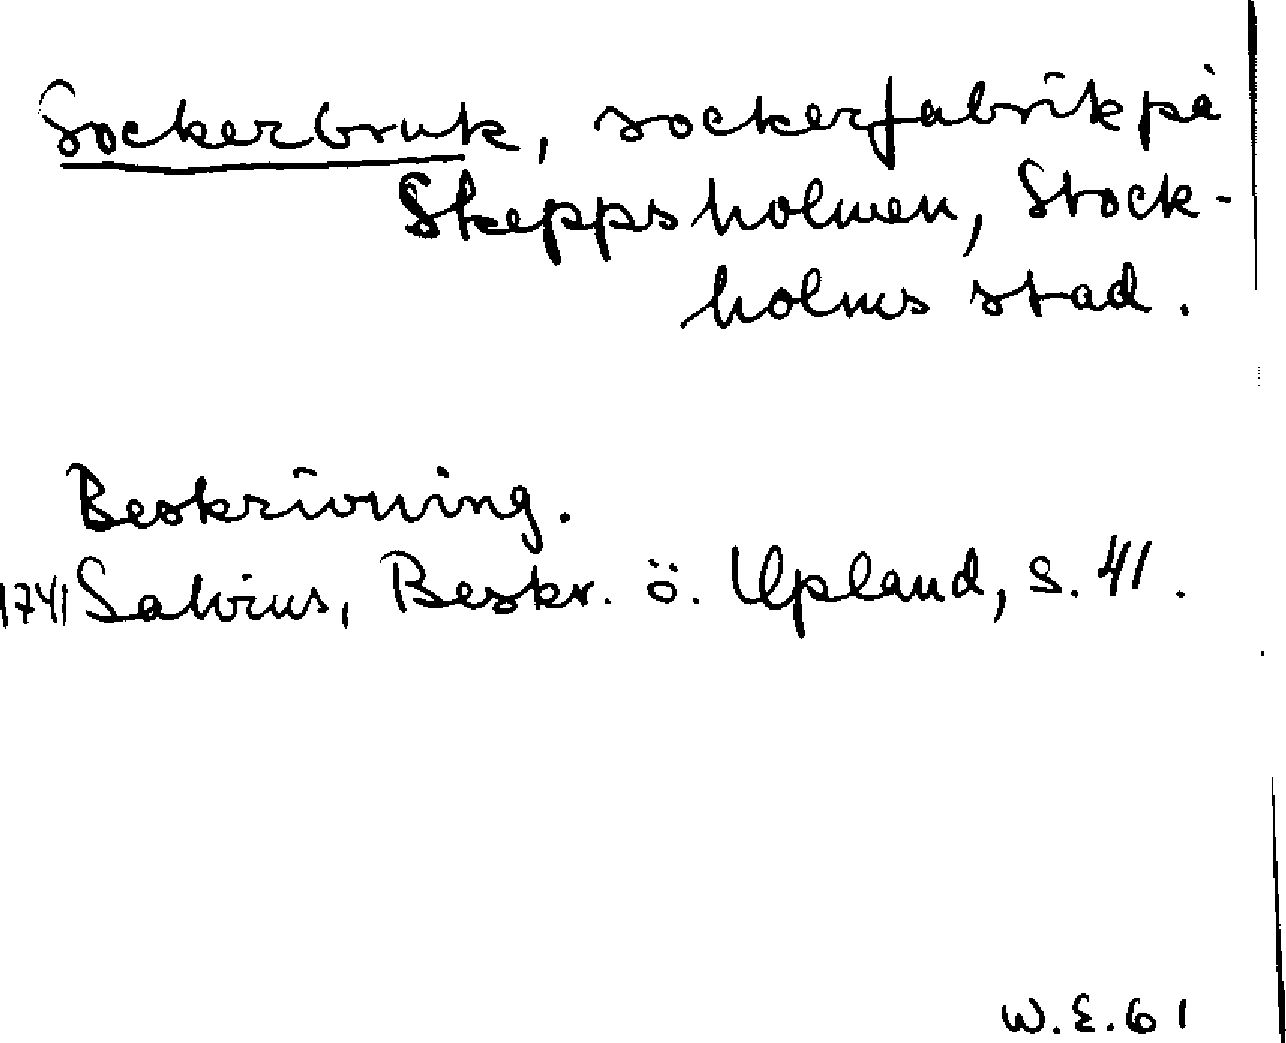 Sockerbruk, sockerfabrik på
Skeppsholmen, Stock-
holms stad.
Beskrivning.
1741 Salvius, Beskr. ö. Upland, s. 41.
W.E.61